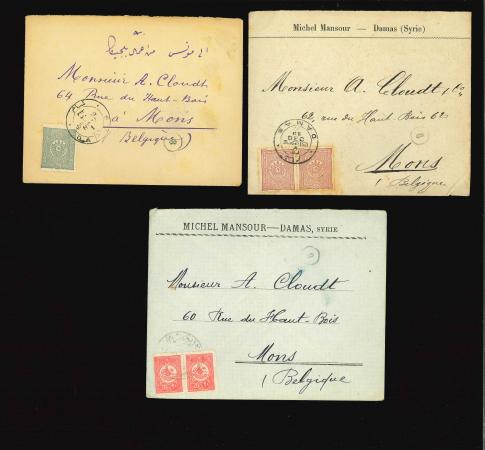 Monsieur A. Cloudt
64 Rue du Haut-Bois
à Mons
(Belgique)
Michel Mansour — Damas (Syrie)
Monsieur A. Cloudt
62, rue du Haut Bois 62
Mons
(Belgique)
DAMAS
DEC
MICHEL MANSOUR — DAMAS, SYRIE
Monsieur A. Cloudt
60 Rue du Haut-Bois
Mons
(Belgique